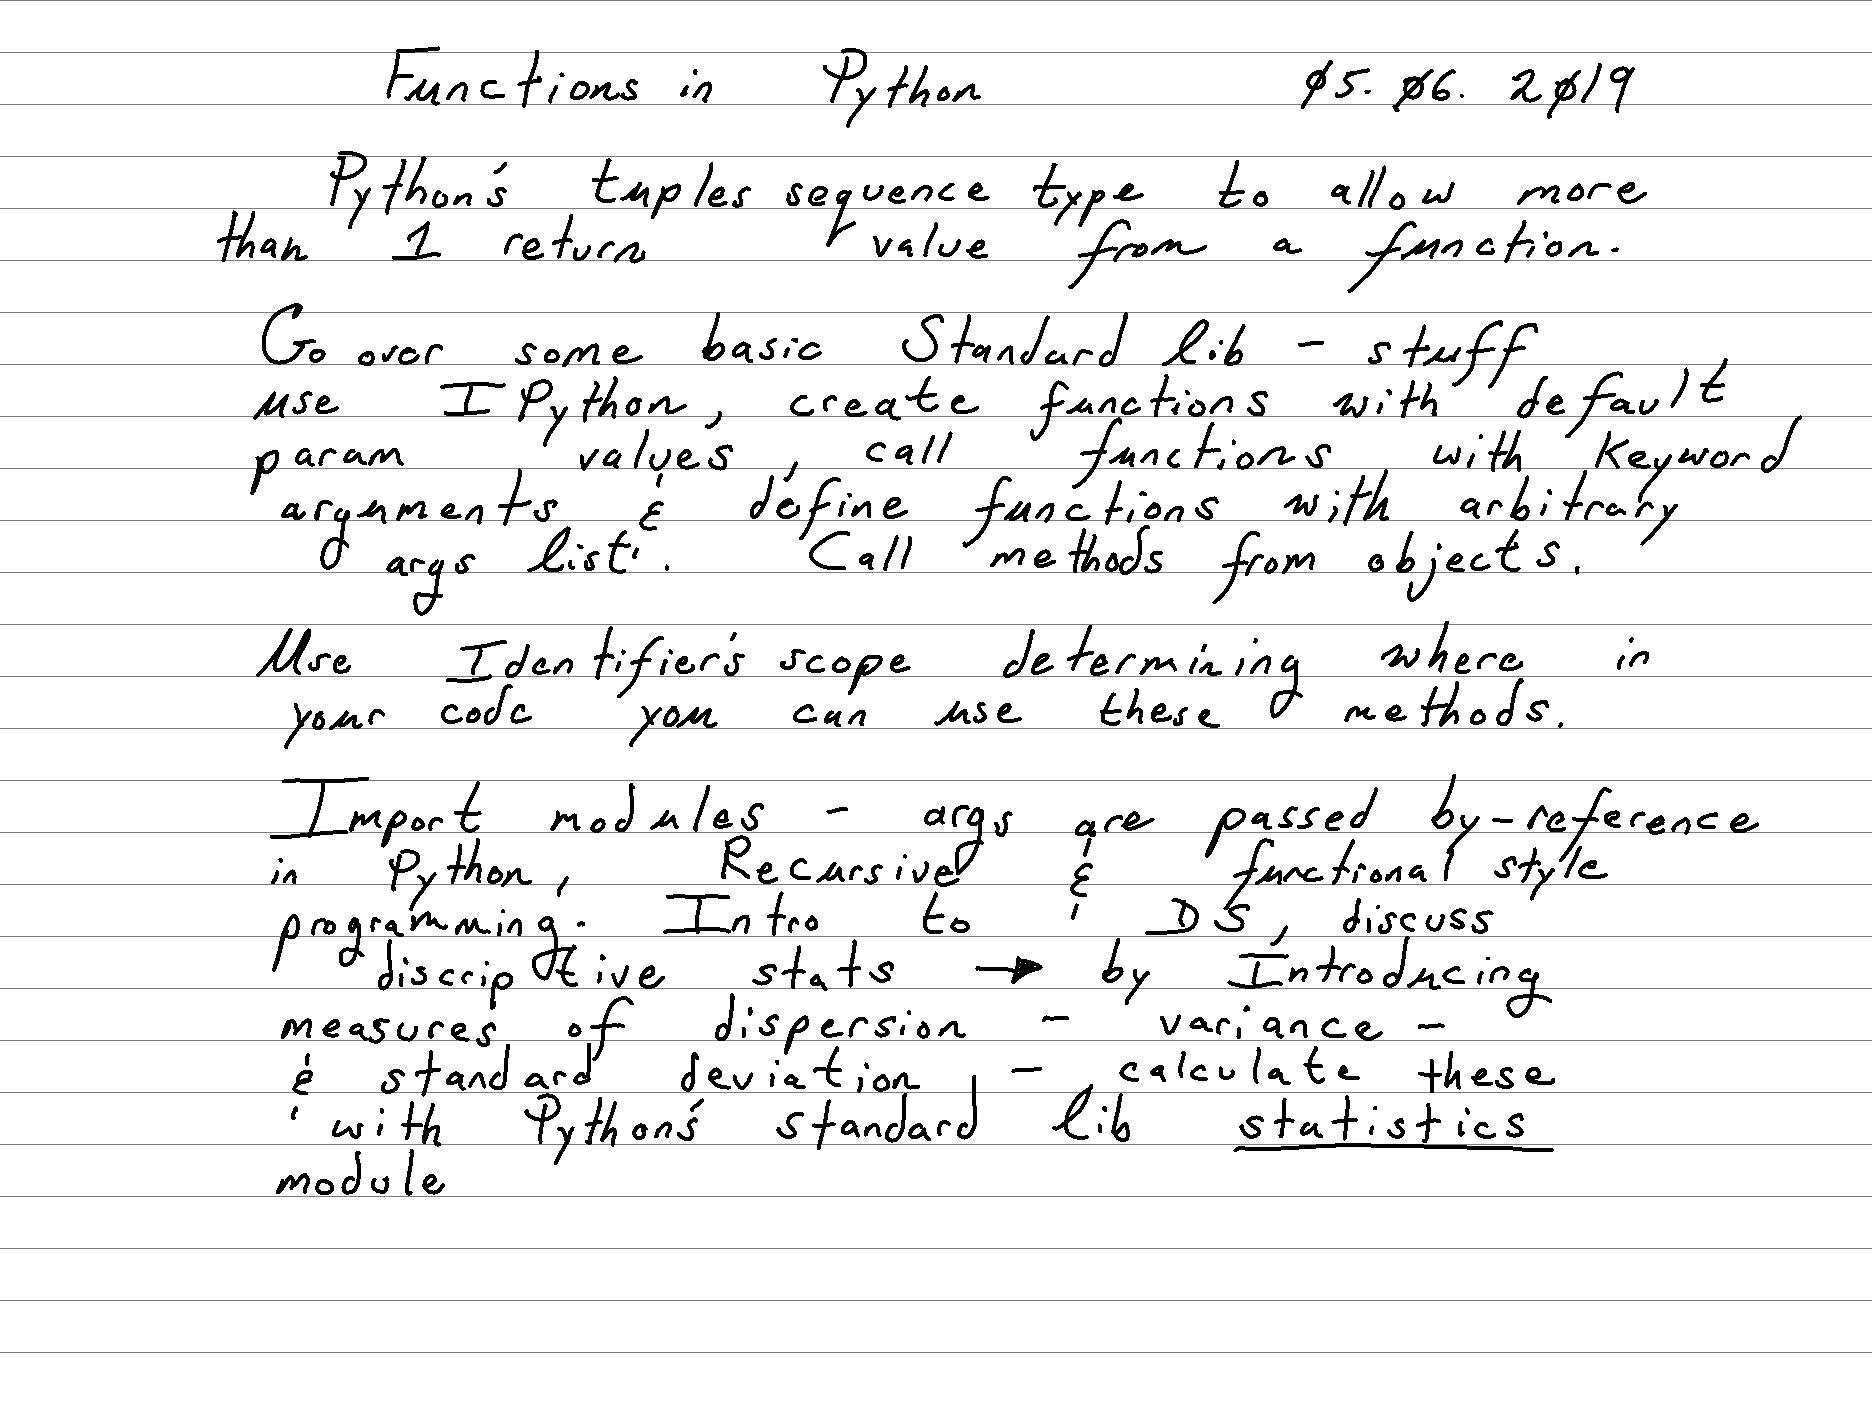 Functions in Python 05. 06. 2019
Python's tuples sequence type to allow more
than 1 return value from a function.
Go over some basic Standard lib - stuff
use IPython, create functions with default
param values, call functions with keyword
arguments & define functions with arbitrary
args list. Call methods from objects.
Use Identifier's scope determining where in
your code you can use these methods.
Import modules - args are passed by-reference
in Python, Recursive & functional style
programming. Intro to DS, discuss
discriptive stats → by Introducing
measures of dispersion - variance -
& standard deviation - calculate these
with Python's standard lib statistics
module